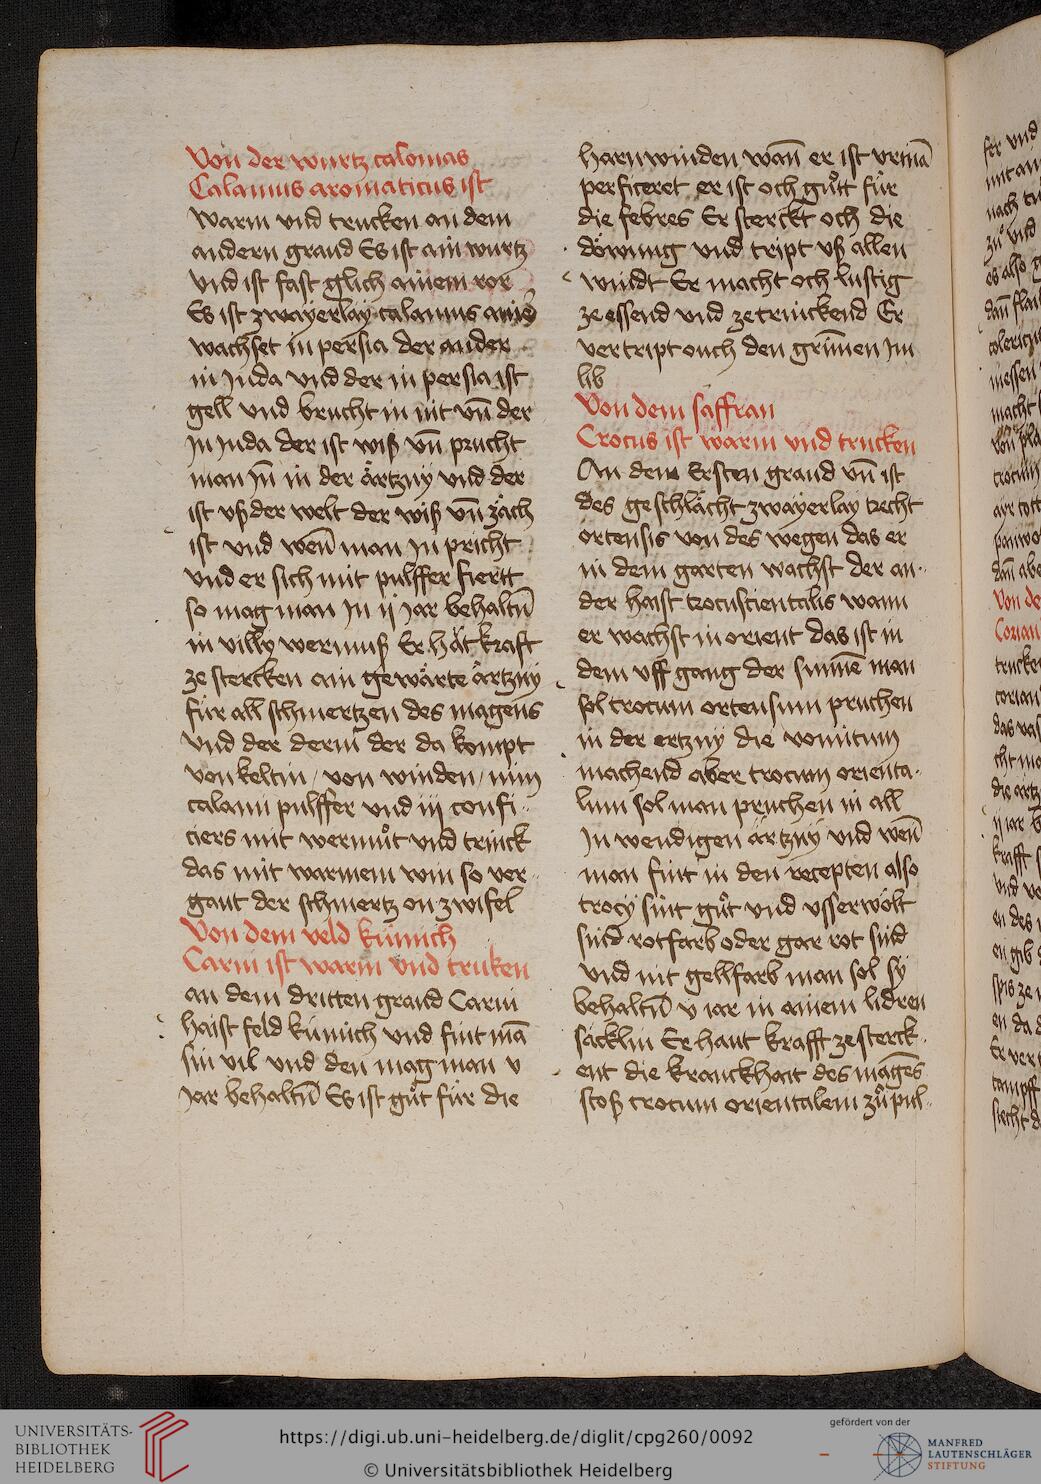 Von der wurtz calomas
Calamus aromaticus ist
warm vnd trucken an dem
andern graud Es ist ain wurtz
vnd ist fast glich ainem ror
Es ist zwayerlay calamus ainer
wachset in persia der ander
in Inda vnd der in persia ist
gell vnd brucht in nit vn̄ der
In Inda der ist wiß vn̄ prucht
man In̄ in der ärtzny vnd der
ist vß der welt der wiß vn̄ zäch
ist vnd wen̄ man In pricht
vnd er sich mit pulffer fiertt
so mag man In ij Jar behaltn̄
in villy wermuß Er hät kraft
ze stercken ain gewärte ärtzny
für all schmertzen des magens
vnd der derm̄ der da kompt
von keltin / von winden / nim
calami pulffer vnd iij confi-
ciers mit wermůt vnd trinck
das mit warmem win so ver-
gaut der schmertz on zwifel
Von dem veld kümich
Carui ist warm vnd truken
an dem dritten graud Carui
haist feld kümich vnd fint mā
sin vil vnd den mag man v
Jar behaltn̄ Es ist gůt für die
harnwinden wan̄ er ist vrinā
perficeret er ist och gůtt für
die febres Er sterckt och die
döwung vnd tript vß allen
windt Er macht och lustig
ze essend vnd ze trinckend Er
vertript ouch den grim̄en Im
lib
Von dem saffran
Crocus ist warm vnd trucken
An dem Ersten graud vn̄ ist
des geschlächt zwayerlay
ortensis von des wegen das er
in dem garten wachst der an-
der haist wann
er wachst in orient das ist in
dem vff gang der sunne man
sol crocum ortensum pruchen
in der ertzny die vomitum
machend aber crocum orienta-
lum sol man pruchen in all
Inwendigen ärtzny vnd wen̄
man fint in den recepten also
crocy sint gůt vnd vsserwölt
sind rotfarb oder gar rot sind
vnd nit gellfarb man sol sy
behaltn̄ v iar in ainem lidren
säcklin Er haut krafft ze sterck-
ent die kranckhait des magēs
stoß crocum orientalem zů pul-
fer vnd
mit
nach
zů vnd
es also
dan̄
messen
macht
crocum
dan̄ abe
Von de
Corian
trucke
corian
das
cht
die artz
ij iar
krafft
vnd
en des
en gib
spis ze
en da
Er
UNIVERSITÄTS-
BIBLIOTHEK
HEIDELBERG
https://digi.ub.uni-heidelberg.de/diglit/cpg260/0092
© Universitätsbibliothek Heidelberg
gefördert von der
MANFRED
LAUTENSCHLÄGER
STIFTUNG